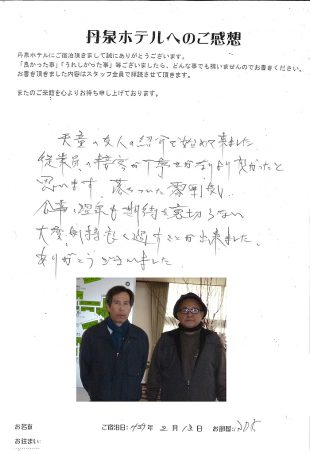 丹泉ホテルへのご感想
丹泉ホテルにご宿泊頂きまして誠にありがとうございます。
「良かった事」「うれしかった事」等ございましたら、どんな事でも構いませんのでお書きください。
お書き頂きました内容はスタッフ全員で拝読させて頂きます。
またのご来館を心よりお待ち申し上げております。
天童の友人の紹介で始めて来ました。
従業員の接客が 良かったと
思います。落ちついた雰囲気、
食事、温泉も期待を裏切らない
大変気持良く過すことが出来ました。
ありがとうございました
お名前 ご宿泊日: 年 2月13日 お部屋:205
お住まい: